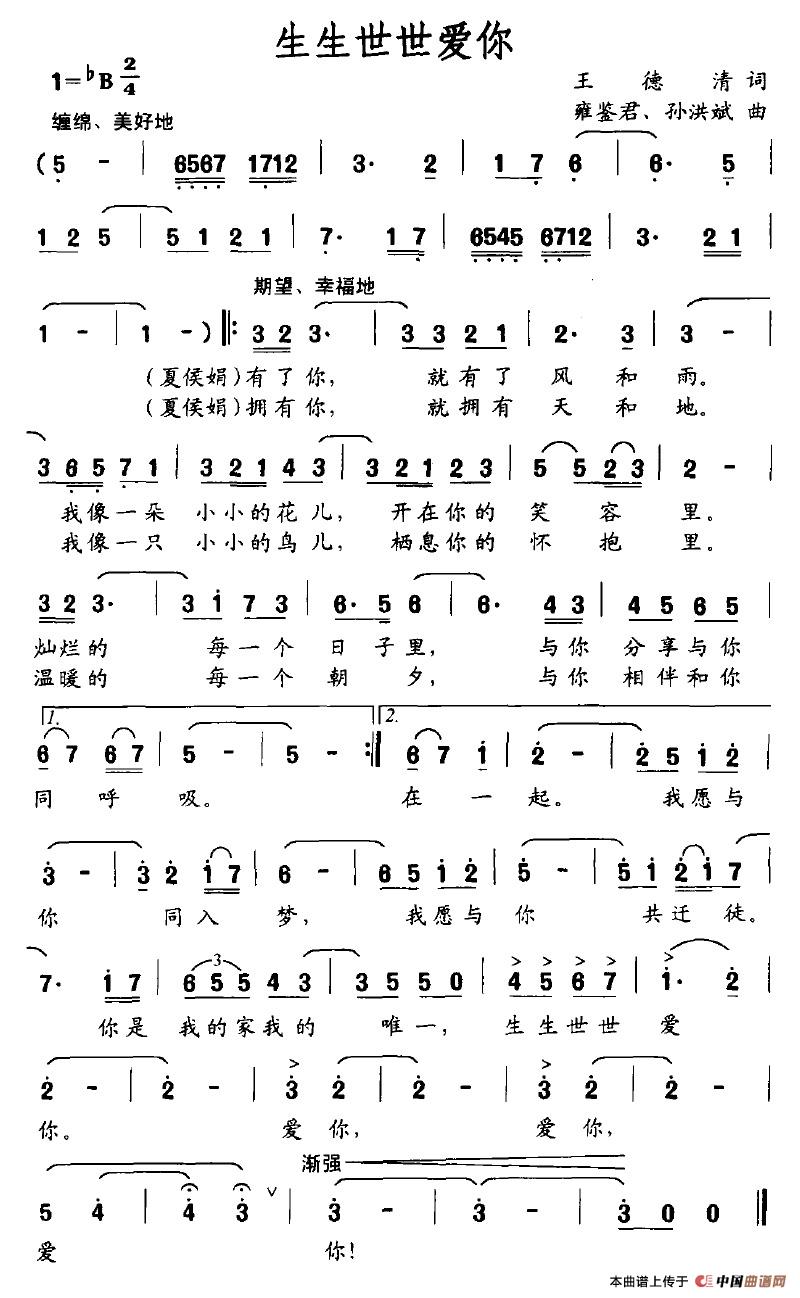 生生世世爱你
1=♭B 2/4
王 德 清 词
缠绵、美好地
雍鉴君、孙洪斌 曲
(5 - | 6567 1712 | 3· 2 | 1 7 6 | 6· 5 |
1 2 5 | 5 1 2 1 | 7· 1 7 | 6545 6712 | 3· 2 1 |
期望、幸福地
1 - | 1 - ) ‖: 3 2 3· | 3 3 2 1 | 2· 3 | 3 -
(夏侯娟)有了你, 就有了 风 和 雨。
(夏侯娟)拥有你, 就拥有 天 和 地。
3 6 5 7 1 | 3 2 1 4 3 | 3 2 1 2 3 | 5 5 2 3 | 2 - |
我像一朵 小小的花儿, 开在你的 笑 容 里。
我像一只 小小的鸟儿, 栖息你的 怀 抱 里。
3 2 3· | 3 1 7 3 | 6· 5 6 | 6· 4 3 | 4 5 6 5 |
灿烂的 每一个 日 子里, 与你 分享与你
温暖的 每一个 朝 夕, 与你 相伴和你
1. 2.
6 7 6 7 | 5 - | 5 - :‖ 6 7 1 | 2 - | 2 5 1 2 |
同 呼 吸。 在 一 起。 我愿与
3 - | 3 2 1 7 | 6 - | 6 5 1 2 | 5 - | 5 1 2 1 7 |
你 同入 梦, 我愿与 你 共迁 徒。
3
7· 1 7 | 6 5 5 4 3 | 3 5 5 0 | 4 5 6 7 | 1· 2 |
你是 我的家我的 唯一, 生生世世 爱
2 - | 2 - | 3 2 | 2 - | 3 2 | 2 - |
你。 爱你, 爱你,
渐强
5 4 | 4 3 ∨ | 3 - | 3 - | 3 0 0 ‖
爱 你!
本曲谱上传于 中国曲谱网